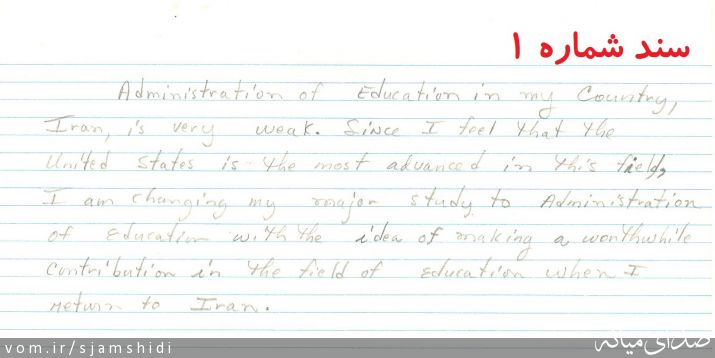 سند شماره ۱
Administration of Education in my Country,
Iran, is very weak. Since I feel that the
United States is the most advanced in this field,
I am changing my major study to Administration
of Education with the idea of making a worthwhile
Contribution in the field of education when I
return to Iran.
vom.ir/sjamshidi صدای میانه